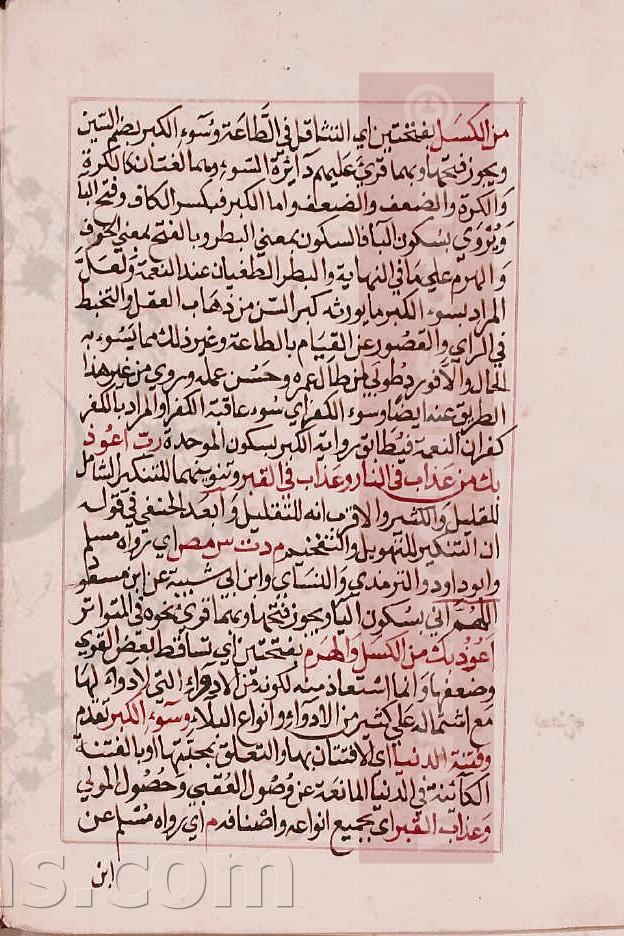 من الكسل بفتحتين اي التثاقل في الطاعة وسوء الكبر بضم السين
ويجوز فتحها وبهما قرئ عليهم دائرة السوء وهما لغتان كالكره
والكره والضعف والضعف واما الكبر فبكسر الكاف وفتح البا
ويروي بسكون الباء فالسكون بمعني البطر وبالفتح بمعني الخرف
والهرم علي ما في النهاية والبطر الطغيان عند النعمة ولعل
المراد بسوء الكبر ما يورثه كبر السن من ذهاب العقل والتخبط
في الراي والقصور عن القيام بالطاعة وغير ذلك مما يسوء به
الحال والا فورد طوبي لمن طال عمره وحسن عمله وروي من غير هذا
الطريق عنه ايضا وسوء الكفر اي سوء عاقبة الكفر او المراد بالكفر
كفران النعمة فيطابق رواية الكبر بسكون الموحدة رب اعوذ
بك من عذاب في النار وعذاب في القبر وتنوينهما للتنكير الشامل
للقليل والكثير والاقرب انه للتقليل وابعد الحنفي في قوله
ان التنكير للتهويل والتفخيم م د ت س مص اي رواه مسلم
وابو داود والترمذي والنسائ وابن ابي شيبة عن ابن مسعود
اللهم اني بسكون اليا ويجوز فتحها وبهما قرئ نحوه في المتواتر
اعوذ بك من الكسل والهرم بفتحتين اي تساقط بعض القوي
وضعفها وانما استعاذ منه لكونه من الادواء التي لا دواء لها
مع اشتماله علي كثير من الادواء وانواع البلاء وسوء الكبر تقدم
وفتنة الدنيا اي الافتتان بها والتعلق بمحبتها او بالفتنة
الكائنة في الدنيا المانعة عن وصول العقبي وحصول المولي
وعذاب القبر اي بجميع انواعه واصنافه م اي رواه مسلم عن
ابن
ns.com